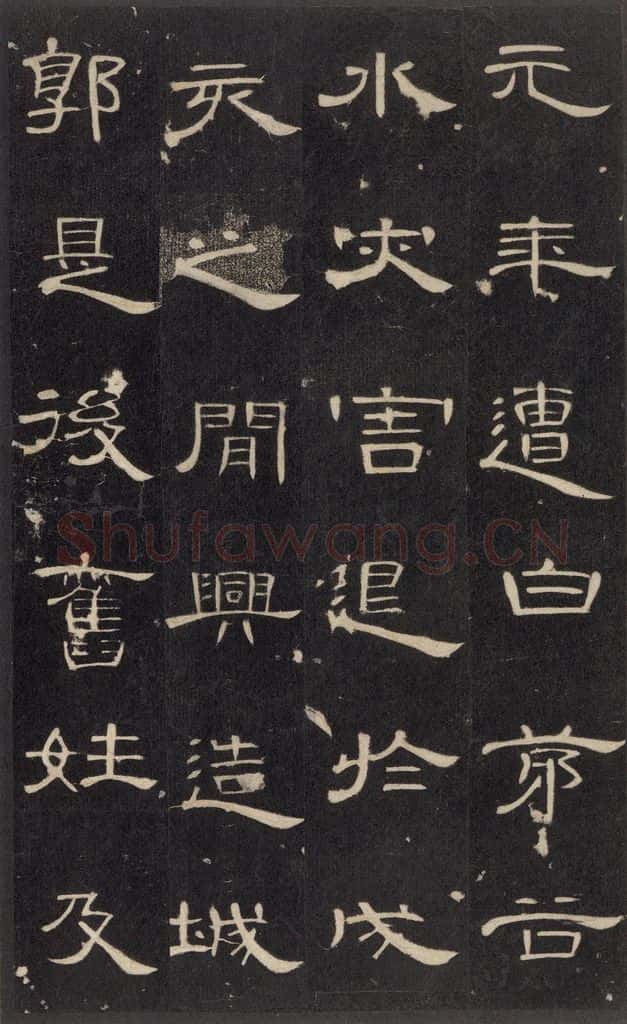 元年遭白茅谷
水灾害退於戌
亥之閒興造城
郭是後舊姓及
Shufawang.CN